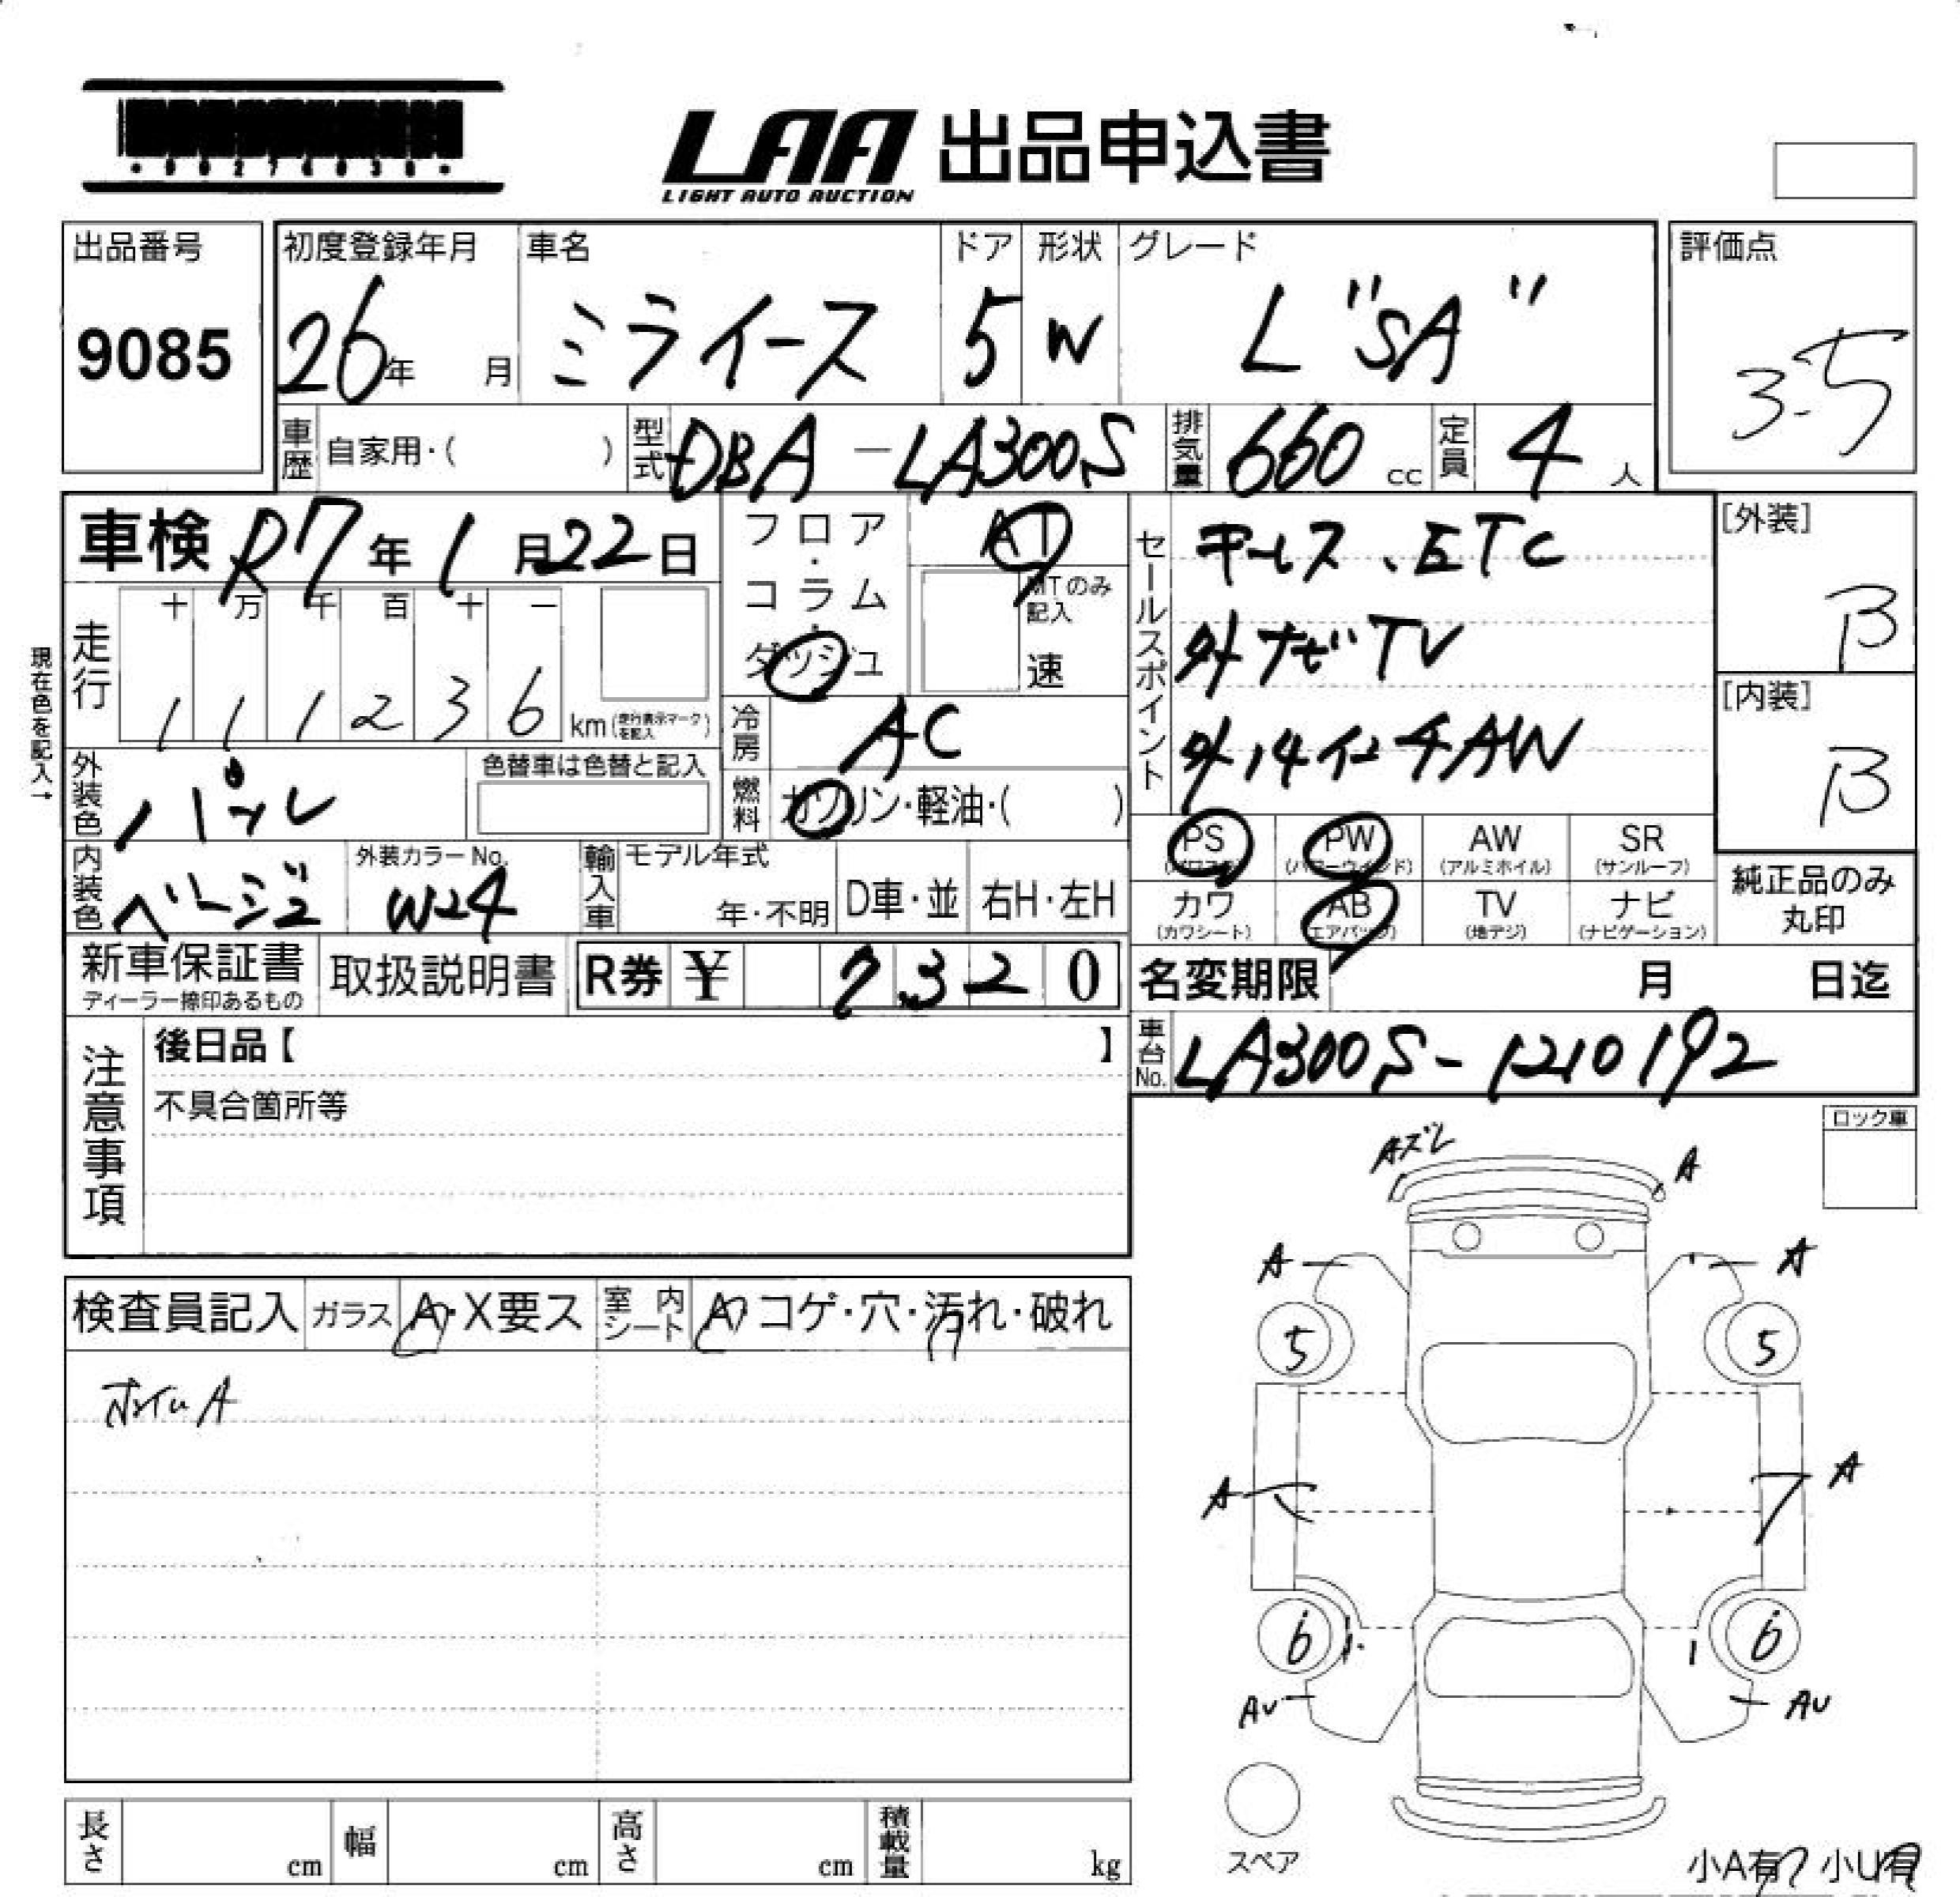 LAA 出品申込書
LIGHT AUTO AUCTION
出品番号
9085
初度登録年月
26年 月
車名
ミライース
ドア
5
形状
W
グレード
L "SA"
評価点
3.5
車歴 自家用・( )
型式 DBA-LA300S
排気量 660 cc
定員 4 人
車検 R7年1月22日
フロア・コラム・ダッシュ
AT
MTのみ記入
速
セールスポイント
キーレス、ETC
外ナビTV
外14インチAW
[外装]
B
[内装]
B
現在色を記入→
走行 十 万 千 百 十 一
1 1 1 2 3 6 km(走行表示マークを記入)
冷房 AC
外装色 パール
色替車は色替と記入
燃料 ガソリン・軽油・( )
PS (パワステ)
PW (パワーウインド)
AW (アルミホイル)
SR (サンルーフ)
カワ (カワシート)
AB (エアバッグ)
TV (地デジ)
ナビ (ナビゲーション)
純正品のみ
丸印
内装色 ベージュ
外装カラーNo.
W24
輸入車 モデル年式
年・不明
D車・並
右H・左H
新車保証書
ディーラー捺印あるもの
取扱説明書
R券 ¥ 7,320
名変期限 月 日迄
車台No. LA300S-1210192
注意事項
後日品【 】
不具合箇所等
ロック車
検査員記入
ガラス A・X要ス
室内シート A・コゲ・穴・汚れ・破れ
ホイルA
Aズレ
A
A
A
5
5
A
A
6
6
AU
AU
スペア
長さ cm
幅 cm
高さ cm
積載量 kg
小A有 小U有